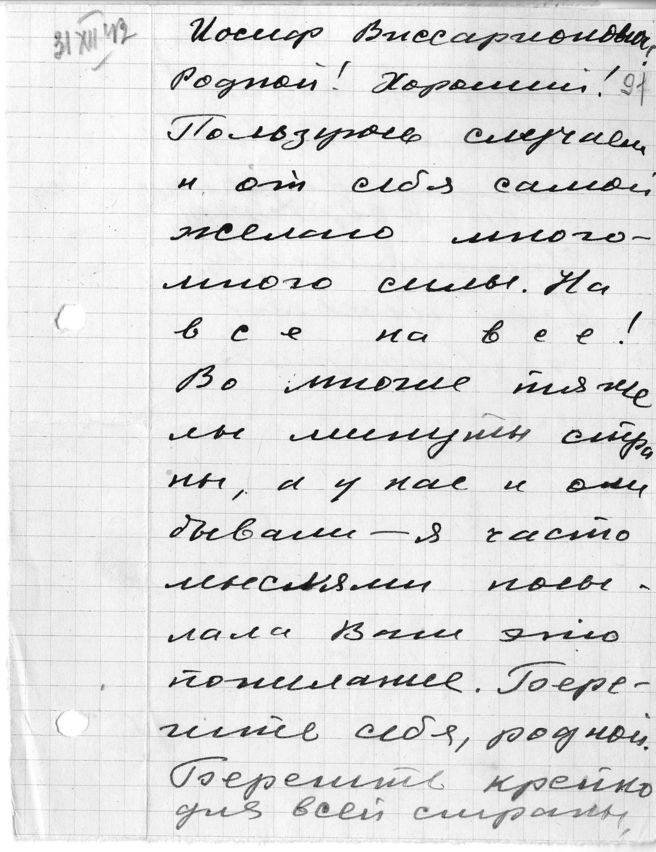 31 XII 42
Иосиф Виссарионович,
Родной! Хороший!
91
Пользуюсь случаем
и от себя самой
желаю много-
много силы. На
все на все!
Во многие тяже
лы минуты стра
ны, а у нас и они
бывали — я часто
мыслями посы-
лала Вам это
пожелание. Бере-
гите себя, родной.
Берегите крепко
для всей страны,